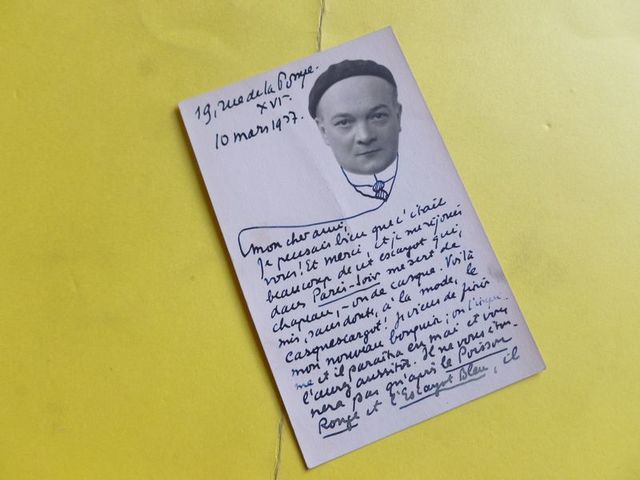 19, rue de la Pompe.
XVIe.
10 mars 1937.
mon cher ami,
Je pensais bien que c'était
vous! Et merci et je me réjouis
beaucoup de cet escargot qui,
dans Paris-Soir me sert de
chapeau, - ou de casque. Voilà
mis, sans doute, à la mode, le
casquescargot! Je viens de finir
mon nouveau bouquin; on l'impri-
me et il paraîtra en mai et vous
l'aurez aussitôt. Il ne vous éton-
nera pas qu'après le Poisson
Rouge et l'Escargot Bleu, il